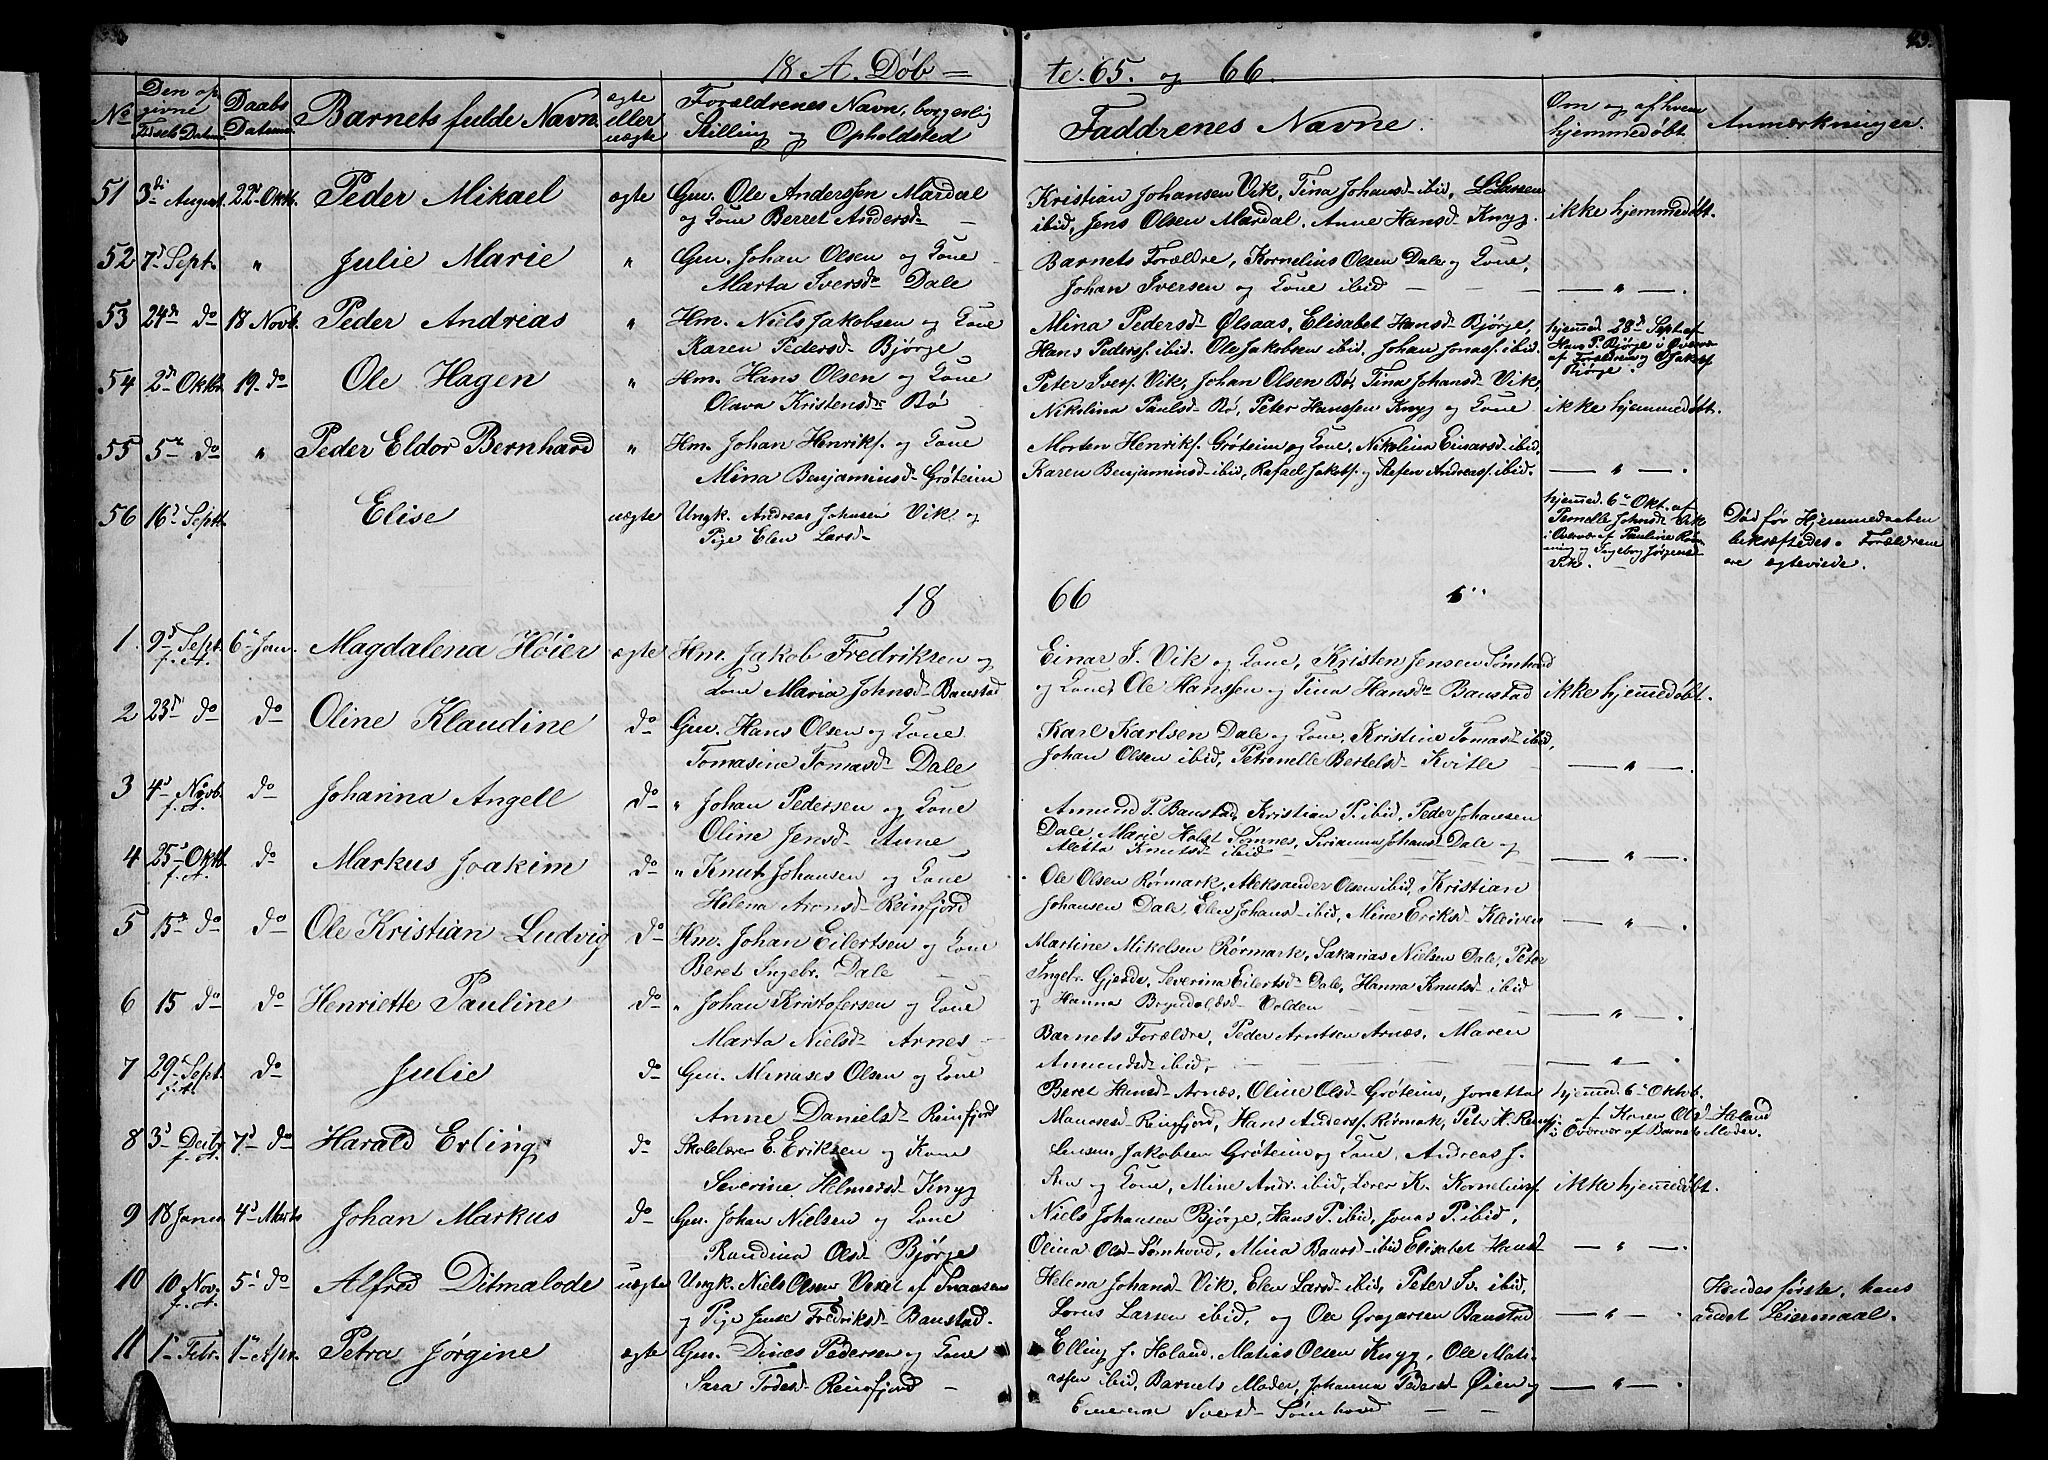 43.
18 A. Døb=
te. 65. og 66.
No
Den op
givne
Føds. Datum
Daabs
Datum
Barnets fulde Navn.
ægte
eller
uægte
Forældrenes Navn, borgerlig
Stilling og Opholdsted
Faddrenes Navne.
Om og af hvem
hjemmedøbt
Anmærkninger.
51 3di August. 22d Oktb. Peder Mikael ægte Gm. Ole Anderssen Mardal
og Kone Berret Andersd- —
Kristian Johansen Vik, Tina Johansd- ibid, L. Larsen
ibid, Jens Olsen Mardal, Anne Hansd- Knyg.
ikke hjemmedøbt.
52 7d Sept. " Julie Marie " Gm. Johan Olsen og Kone
Marta Iversdr Dale
Barnets Forældre, Kornelius Olsen Dale og Kone,
Johan Iversen og Kone ibid — —
— " —.
53 24de do 18 Novb. Peder Andreas " Hm. Niels Jakobsen og Kone
Karen Pedersd- Bjørge
Mina Pedersd- Ølsaas, Elisabet Hansd- Bjørge,
Hans Pederss. ibid. Ole Jakobsen ibid. Johan Jonass. ibid.
hjemmed. 28d Sept. af
Hans P. Bjørge i Overvær
af Forældren og O. Jakobs.
Bjørge.
54 2de Oktbr 19. do Ole Hagen " Hm. Hans Olsen og Kone
Olava Kristensdr Bø
Peter Ivers. Vik, Johan Olsen Bø, Tina Johansd- Vik,
Nikolina Paulsd- Bø, Peter Hanssen Knyg og Kone
ikke hjemmedøbt.
55 5te do " Peder Eldor Bernhard " Hm. Johan Henriks. og Kone
Mina Benjaminsd- Grøteim
Morten Henriks. Grøteim og Kone, Nikolina Einarsd- ibid,
Karen Benjaminsd- ibid, Rafael Jakobs. og Stefen Andreass. ibid.
— " —.
56 16d Septb. Elise uægte Ungk. Andreas Johnsen Vik og
Pige Elen Larsd-
hjemmed. 6te Okt. af
Pernelle Johnsd- Vik
i Overvær af Pauline Røn-
ning og Ingeborg Jørgensd-
Vik.
Død før Hjemmedaaben
bekræftedes. Forældrene
ere ægteviede.
18
66
1. 9d Sept. f. A. 6te Jan. Magdalena Høier ægte Hm. Jakob Fredriksen og
Kone Maria Johnsd- Baustad
Einar J. Vik og Kone, Kristen Jensen Sømhovd
og Kone, Ole Hanssen og Tina Hansdr Baustad
ikke hjemmedøbt.
2 23d do do Oline Klaudine do Gm. Hans Olsen og Kone
Tomasine Tomasd- Dale
Karl Karlsen Dale og Kone, Kristine Tomasd- ibid,
Johan Olsen ibid, Petronelle Bertelsd- Kvitle —
— " —.
3 4d Novb. f. A. do Johanna Angell do " Johan Pedersen og Kone
Oline Jensd- Aune
Amund P. Baustad, Kristian P. ibid, Peder Johansen
Dale, Marie Holst Sømnes, Serianna Johansd- Dale og
Aletta Knutsd- ibid
— " —.
4 25d Oktb. f. A. do Markus Joakim do " Knut Johansen og Kone
Helena Aronsd- Reinfjord
Ole Olsen Rørmark, Aleksander Olsen ibid, Kristian
Johansen Dale, Elen Johansd- ibid, Mine Eriksd- Kleiven
— " —.
5 15de do do Ole Kristian Ludvig do Hm. Johan Eilertsen og Kone
Beret Ingebr. Dale —
Martine Mikelsen Rørmark, Sakarias Nielsen Dale, Peter
Ingebr. Gjerde, Severina Eilertsd- Dale, Hanna Knutsd- ibid
og Hanna Bryndalsd- Volden —
— " —.
6 15 do do Henriette Pauline do " Johan Kristofersen og Kone
Marta Nielsd- Arnes —
Barnets Forældre, Peder Arntsen Arnæs, Maren
Amundsd- ibid, — —
— " —.
7 29d Sept. f. A. do Julie do Gm. Menases Olsen og Kone
Anne Danielsd- Reinfjord
Beret Hansd- Arnæs, Oline Olsd- Grøteim, Jonetta
Manssesd- Reinfjord, Hans Anderss. Rørmark, Peter H. Reinfj.
hjemmed. 6te Oktob.
af Karen Olsd- Høland
i Overvær af Barnets Moder.
8 3d Decbr f. A. 7d do Harald Erling do Skolelærer E. Eriksen og Kone
Severine Helmersd- Knyg
Jakobsen Grøteim og Kone, Andreas J.
og Kone, Mine Andr. ibid, Lærer K. Korneliuss.
ikke hjemmedøbt.
9 18 Janu 4d Marts Johan Markus do Gm. Johan Nielsen og Kone
Randina Olsd- Bjørge
Niels Johansen Bjørge, Hans P. ibid, Jonas P. ibid,
Olina Olsd- Sømhovd, Mina Baarsd- ibid Elisabet Hansd-
— " —.
10 10 Nov. f. A. 5d do Alfred Ditmalode uægte Ungk. Niels Olsen Vexet af Snaasen
og Pige Jense Fredriksd- Baustad.
Helena Johansd- Vik, Elen Larsd- ibid, Peter Iv. ibid,
Lorns Larsen ibid, og Ole Gregorsen Baustad
— " —.
Hendes første, hans
andet Leiermaal.
11 1te Febr. 1te Apr. Petra Jørgine ægte Gm. Dines Pedersen og Kone
Sara Todesd- Reinfjord —
Elling J. Høland, Matias Olsen Knyg, Ole Mati-
assen ibid, Barnets Moder, Johanna Pedersd- Øien og
Iversd- Sømhovd — —
— " —.